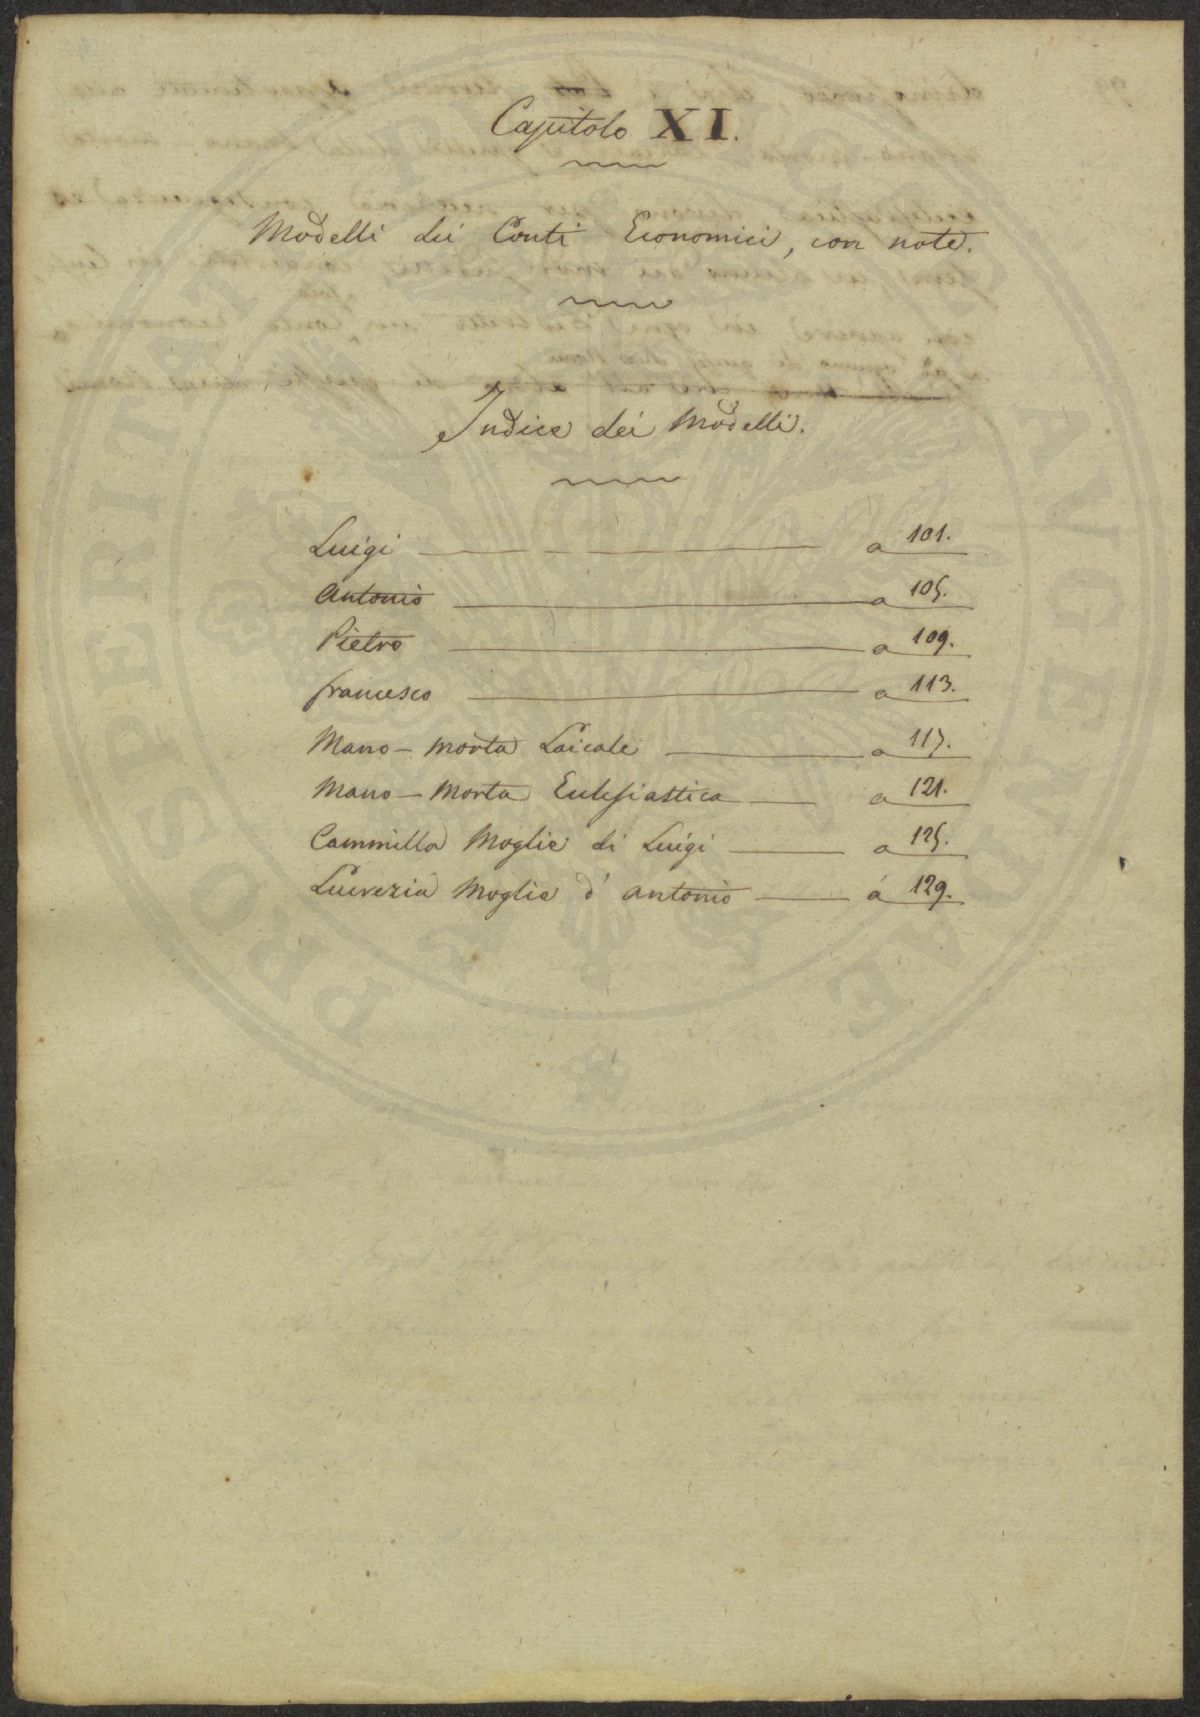 Capitolo XI.
Modelli dei Conti Economici, con note.
Indice dei Modelli.
Luigi a 101.
Antonio a 105.
Pietro a 109.
francesco a 113.
Mano-morta Laicale a 117.
Mano-Morta Eclesiastica a 121.
Cammilla Moglie di Luigi a 125.
Lucrezia Moglie d'Antonio a 129.